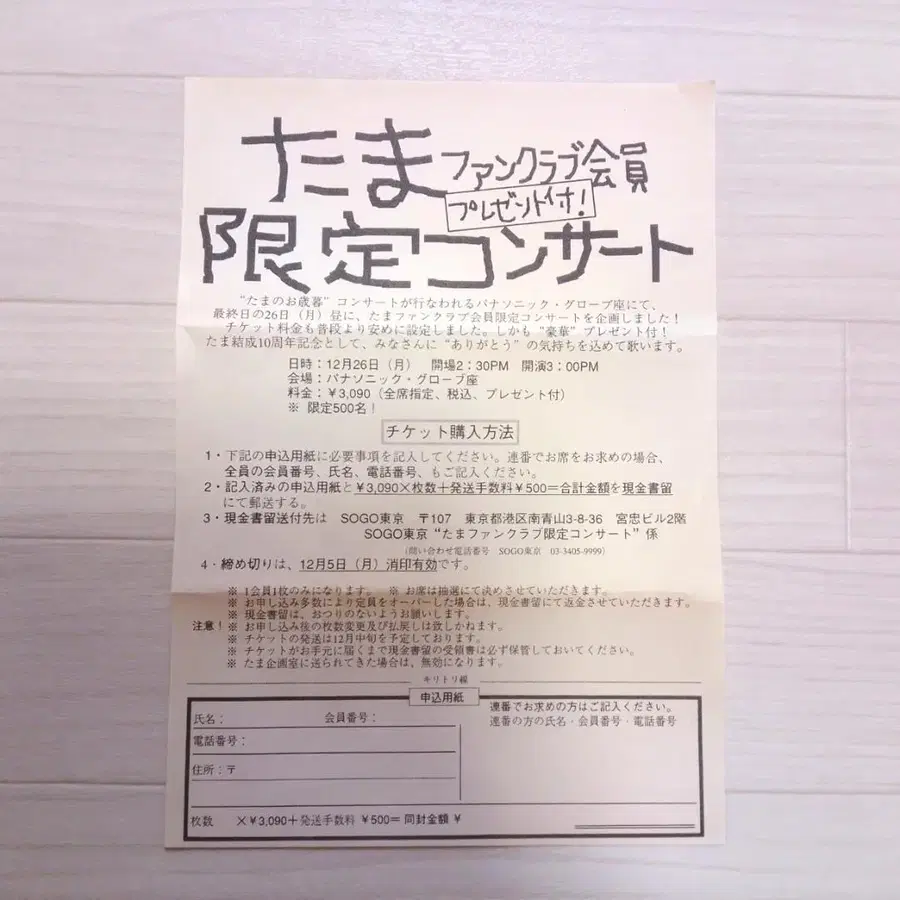 たま ファンクラブ会員
プレゼント付!
限定コンサート
“たまのお歳暮” コンサートが行なわれるパナソニック・グローブ座にて、
最終日の26日(月)昼に、たまファンクラブ会員限定コンサートを企画しました!
チケット料金も普段より安めに設定しました。しかも “豪華” プレゼント付!
たま結成10周年記念として、みなさんに “ありがとう” の気持ちを込めて歌います。
日時:12月26日(月) 開場2:30PM 開演3:00PM
会場:パナソニック・グローブ座
料金:¥3,090(全席指定、税込、プレゼント付)
※ 限定500名!
チケット購入方法
1・下記の申込用紙に必要事項を記入してください。連番でお席をお求めの場合、
全員の会員番号、氏名、電話番号、もご記入ください。
2・記入済みの申込用紙と¥3,090×枚数+発送手数料¥500=合計金額を現金書留
にて郵送する。
3・現金書留送付先は SOGO東京 〒107 東京都港区南青山3-8-36 宮忠ビル2階
SOGO東京 “たまファンクラブ限定コンサート” 係
(問い合わせ電話番号 SOGO東京 03-3405-9999)
4・締め切りは、12月5日(月)消印有効です。
※ 1会員1枚のみになります。 ※ お席は抽選にて決めさせていただきます。
※ お申し込み多数により定員をオーバーした場合は、現金書留にて返金させていただきます。
※ 現金書留は、おつりのないようお願いします。
注意!※ お申し込み後の枚数変更及び払戻しは致しかねます。
※ チケットの発送は12月中旬を予定しております。
※ チケットがお手元に届くまで現金書留の受領書は必ず保管しておいてください。
※ たま企画室に送られてきた場合は、無効になります。
キリトリ線
申込用紙
氏名: 会員番号:
電話番号:
住所:〒
連番でお求めの方はご記入ください。
連番の方の氏名・会員番号・電話番号
枚数 ×¥3,090+発送手数料 ¥500= 同封金額 ¥